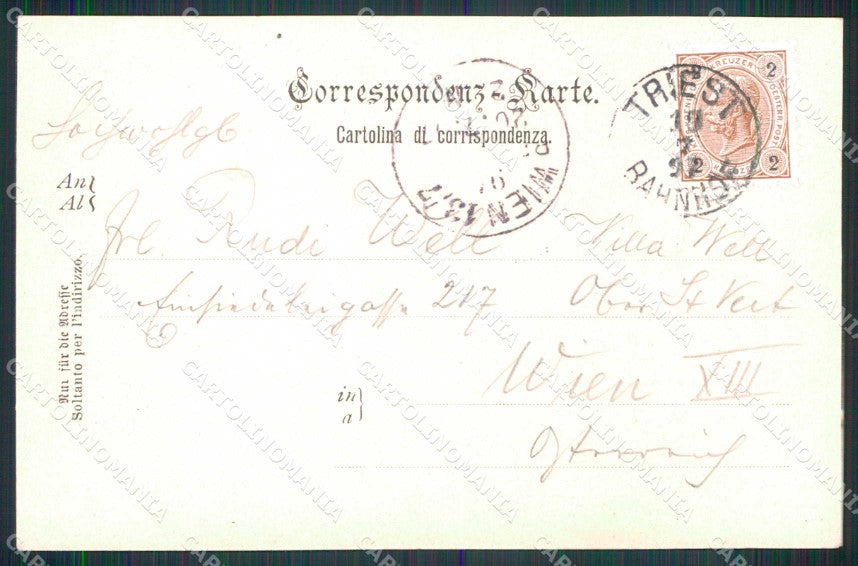 Correspondenz-Karte.
Cartolina di corrispondenza.
Hochwohlgb
An
Al
Frl. Rudi Well Villa Well
Einsiedeleigasse 217 Ober St Veit
Wien XIII
in
a
Österreich
Nur für die Adresse
Soltanto per l'indirizzo.
TRIEST
BAHNHOF
WIEN 13/7
2 KREUZER 2
2 2
CARTOLINOMANIA